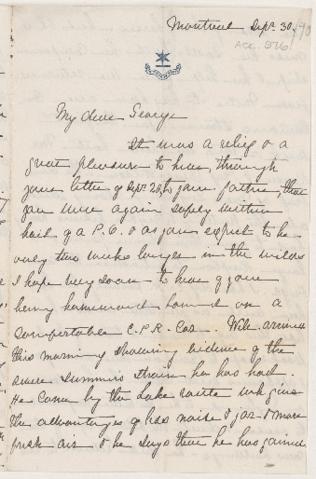 Montreal Sept. 30.
ACC. 576
My dear George
It was a relief & a
great pleasure to hear, through
your letter of Sept. 20, to your father, that
you were again safely within
hail of a P.O. & as you expect to be
only two weeks longer in the wilds
I hope very soon to hear of your
being homeward bound on a
comfortable C.P.R. Car. Will arrived
this morning showing evidence of the
summer's strain he has had.
He came by the Lake route wh. gives
the advantages of less noise & jar & more
fresh air & he says there he has gained